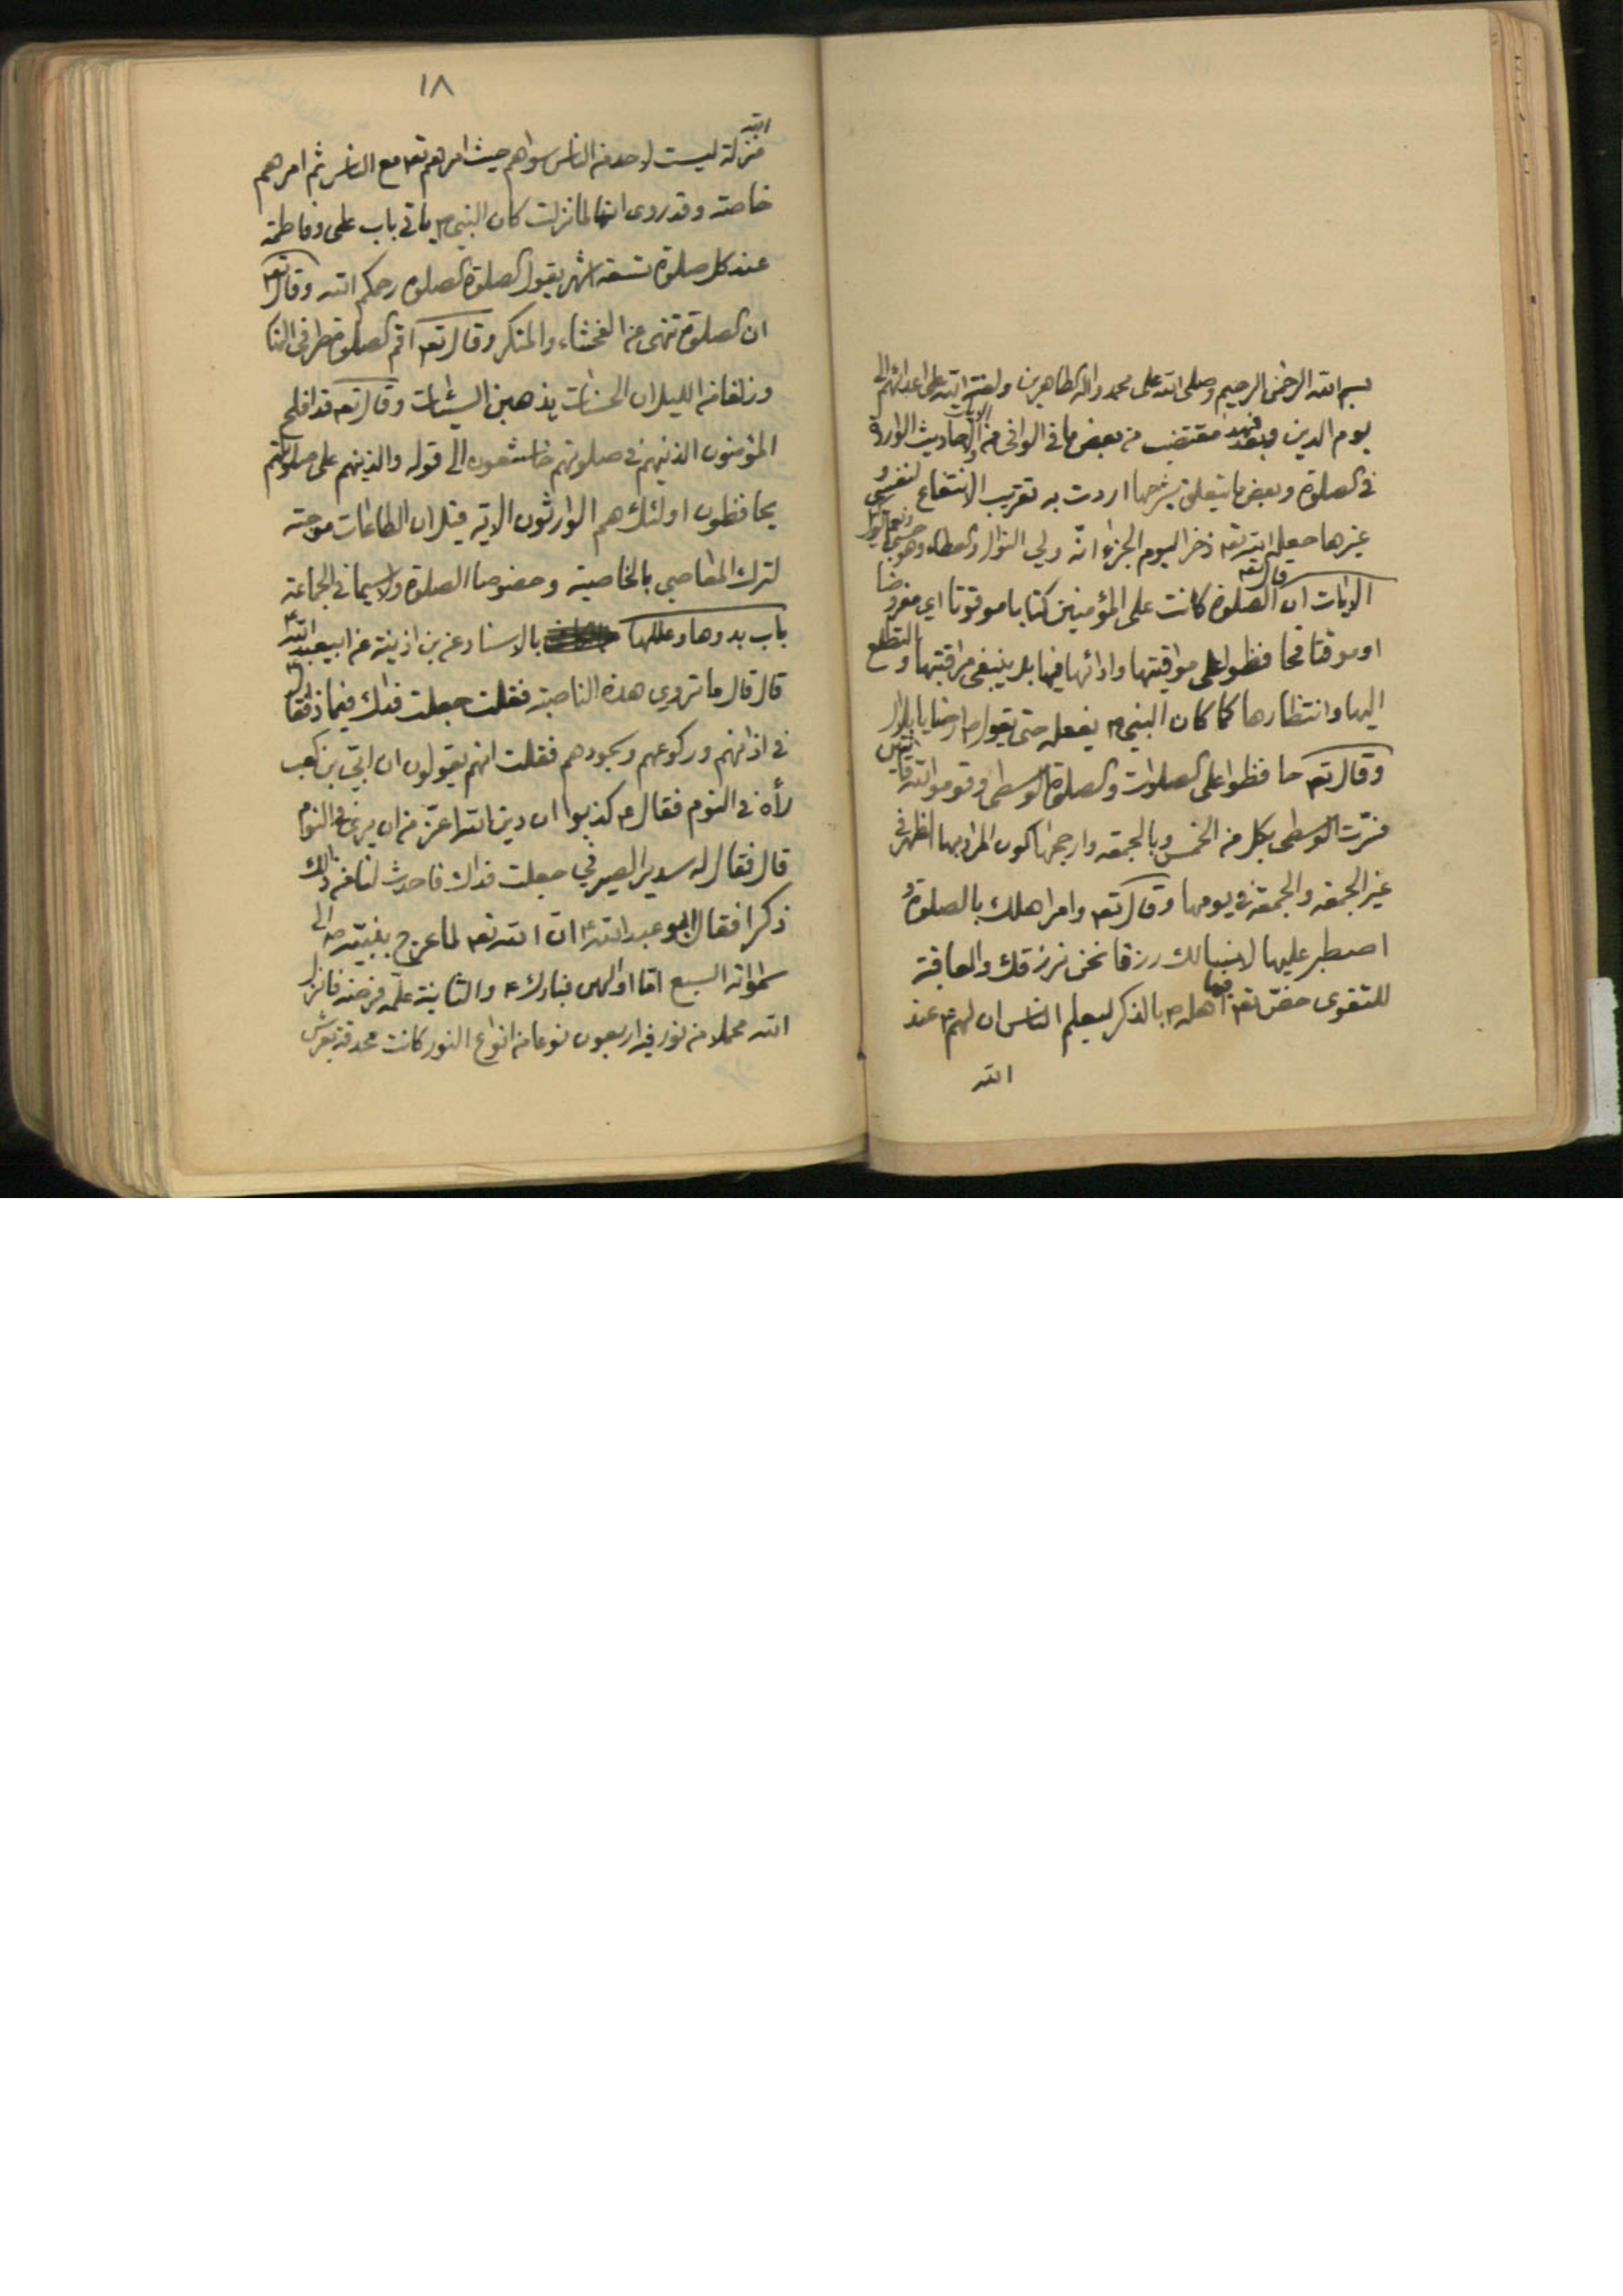 بسم الله الرحمن الرحيم وصلى الله على محمد واله الطاهرين ولعنة الله على اعدائهم الى
يوم الدين وبعد فهذا مقتضب من بعض ما في الوافي من الايات والاحاديث الواردة
في الصلوة وبعض ما يتعلق بشرحها اردت به تقريب الانتفاع لنفسي و
غيرها جعله الله تعه ذخرا ليوم الجزاء انه ولي النوال والعطاء وهو حسبي ونعم الوكيل
الايات قال تعه ان الصلوة كانت على المؤمنين كتابا موقوتا اي مفروضا
او موقتا فحافظوا على مواقيتها وادائها فيها بل ينبغي مراقبتها والتطلع
اليها وانتظارها كما كان النبي ص يفعله حتى يقول ص ارحنا يا بلال
وقال تعه حافظوا على الصلوات والصلوة الوسطى وقوموا لله قانتين
فسرت الوسطى بكل من الخمس وبالجمعه وارجحها كون المراد بها الظهر في
غير الجمعه والجمعة في يومها وقال تعه وامر اهلك بالصلوة و
اصطبر عليها لا نسالك رزقا نحن نرزقك والعاقبة
للتقوى خص تعه فيها اهله ص بالذكر ليعلم الناس ان لهم ع عند
الله
١٨
الله
منزلة ليست لاحد من الناس سواهم حيث امرهم تعه مع الناس ثم امرهم
خاصة وقد روى انها لما نزلت كان النبي ص ياتي باب علي وفاطمة
عند كل صلوة تسعة اشهر يقول الصلوة الصلوة رحمكم الله وقال تعه
ان الصلوة تنهى عن الفحشاء والمنكر وقال تعه اقم الصلوة طرفي النها
وزلفا من الليل ان الحسنات يذهبن السيئات وقال تعه قد افلح
المؤمنون الذينهم في صلوتهم خاشعون الى قوله والذينهم على صلواتهم
يحافظون اولئك هم الوارثون الاية قيل ان الطاعات موجبة
لترك المعاصي بالخاصية وخصوصا الصلوة ولا سيما في الجماعة
باب بدوها وعللها بالاسناد عن بن اذينة عن ابيعبد الله ع
قال قال ما تروي هذه الناصبة فقلت جعلت فداك فيماذا فقال
في اذانهم وركوعهم وسجودهم فقلت انهم يقولون ان ابي بن كعب
رأه في النوم فقال ع كذبوا ان دين الله اعز من ان يرى في النوم
قال فقال له سدير الصيرفي جعلت فداك فاحدث لنا من ذلك
ذكرا فقال ابو عبدالله ع ان الله تعه لما عرج بنبيه ص الى
سمواته السبع اما اولهن فبارك ع والثانية علمه فرضه فانزل
الله محملا من نور فيه اربعون نوعا من انواع النور كانت محدقة بعرش